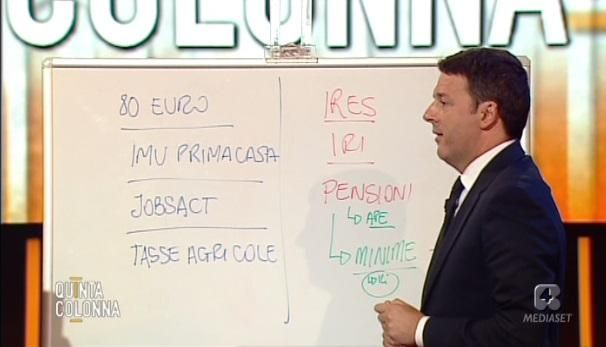 COLONNA
80 EURO
IMU PRIMA CASA
JOBSACT
TASSE AGRICOLE
IRES
IRI
PENSIONI
↳ APE
↳ MINIME
QUINTA
COLONNA
4
MEDIASET